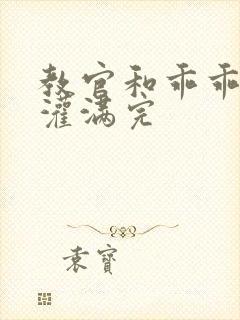 教官和乖乖
灌满完
袁寶